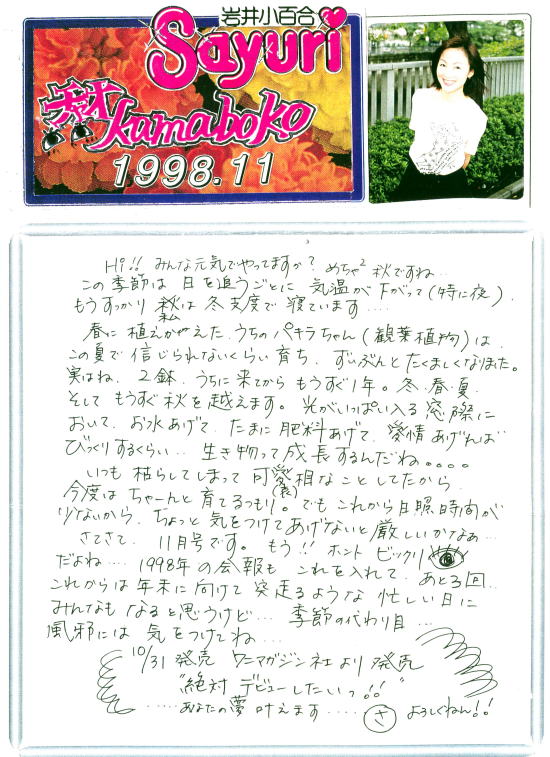 岩井小百合
Sayuri
kamaboko
1998.11
Hi!! みんな元気でやってますか? めちゃ2 秋ですね…
この季節は 日を追うごとに 気温が下がって(特に夜)、
もうすっかり 秋は冬支度で寝ています…
私
春に植えかえた、うちのパキラちゃん(観葉植物)は、
この夏で信じられないくらい育ち、ずいぶんとたくましくなりました。
実はね、2鉢、うちに来てからもうすぐ1年。冬・春・夏、
そしてもうすぐ秋を越えます。光がいっぱい入る窓際に
おいて、お水あげて、たまに肥料あげて、愛情あげれば
びっくりするくらい… 生き物って成長するんだね。。。。
いつも枯らしてしまって可愛相なことしてたから、
(哀)
今度はちゃーんと育てるつもり。でもこれから日照時間が
少ないから、ちょっと気をつけてあげないと厳しいかなぁ…
さてさて、11月号です。もう!! ホントビックリ
だよね… 1998年の会報もこれを入れて、あと3回…
これからは年末に向けて突走るような忙しい日に
みんなもなると思うけど… 季節の代わり目…
風邪には気をつけてね…
10/31発売 ワニマガジン社より発売
"絶対デビューしたいっ!!"
……あなたの夢叶えます…… さ よろしくねん!!